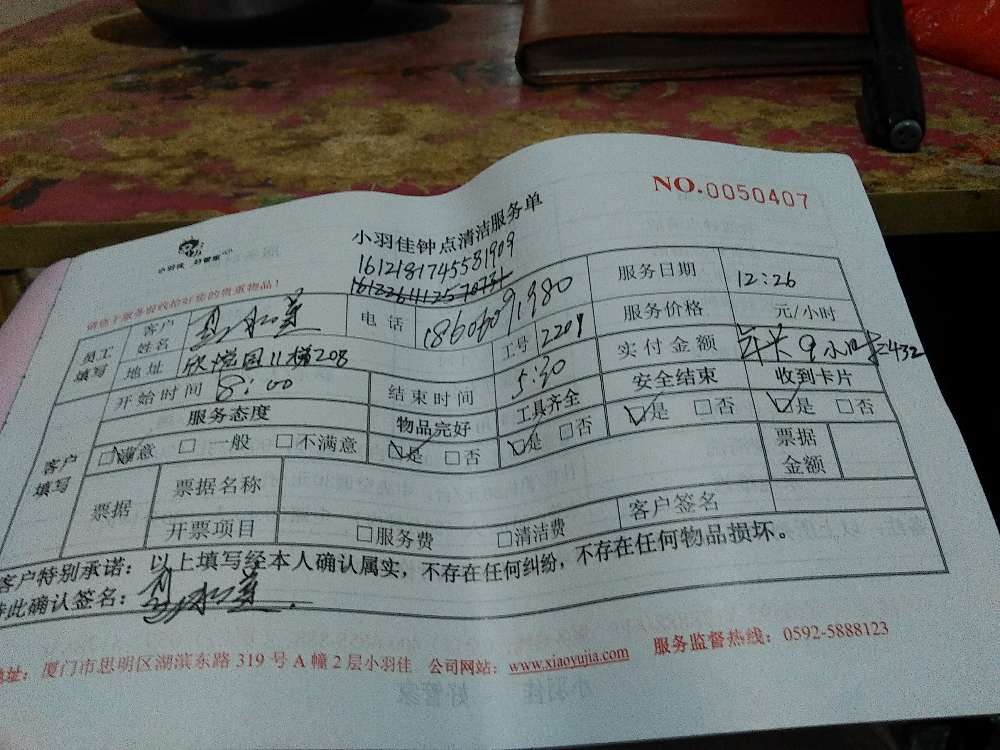 NO.0050407
小羽佳 好管家
小羽佳钟点清洁服务单
1612181745581909
请您于服务前收拾好您的贵重物品!
员工填写 客户姓名 电话 服务日期 12:26
地址 欣 园11梯208 工号 2209 服务价格 元/小时
开始时间 8:00 结束时间 5:30 实付金额 年卡9小时 =432
客户填写 服务态度 物品完好 工具齐全 安全结束 收到卡片
□满意 □一般 □不满意 □是 □否 □是 □否 □是 □否 □是 □否
票据 票据名称 票据金额
开票项目 □服务费 □清洁费 客户签名
客户特别承诺:以上填写经本人确认属实,不存在任何纠纷,不存在任何物品损坏。
特此确认签名:
地址:厦门市思明区湖滨东路 319 号 A 幢 2 层小羽佳 公司网站:www.xiaoyujia.com 服务监督热线:0592-5888123